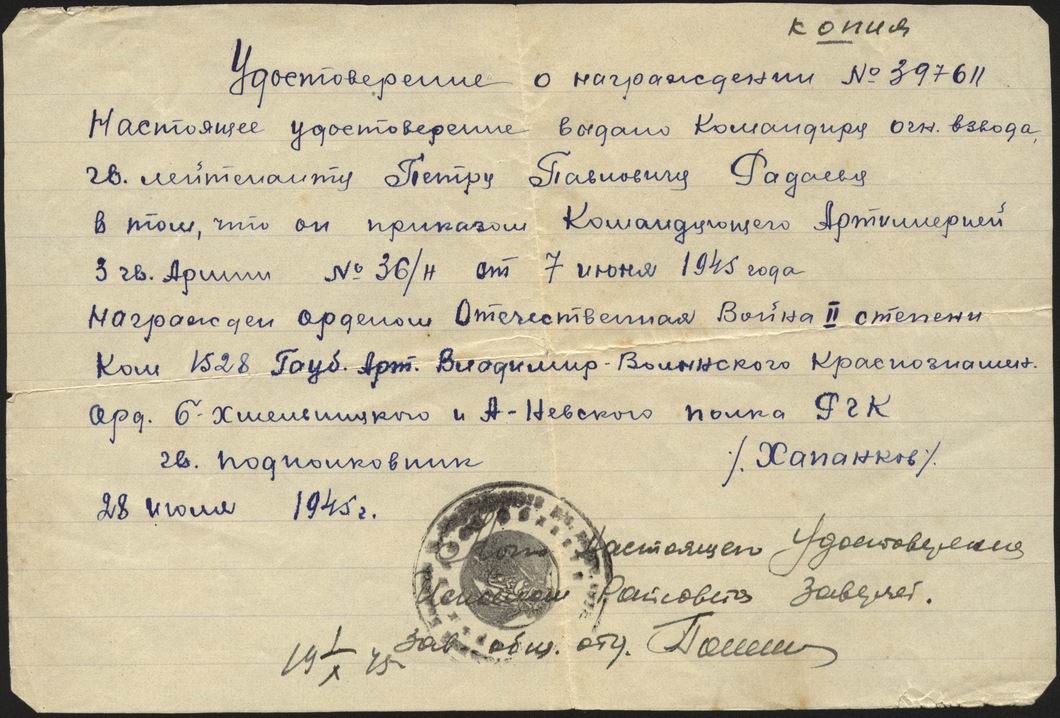 копия
Удостоверение о награждении № 397611
Настоящее удостоверение выдано Командиру огн. взвода,
гв. лейтенанту Петру Павловичу Фадееву
в том, что он приказом Командующего Артиллерией
3 гв. Армии № 36/н от 7 июня 1945 года
награжден орденом Отечественная Война II степени
Ком 1528 Гауб. Арт. Владимир-Волынского Краснознамен.
Орд. Б-Хмельницкого и А-Невского полка РГК
гв. подполковник /. Хапанков/.
28 июля 1945 г.
Настоящего Удостоверения
Райсовета Заверяет.
Зав. общ. отд.
19 1/X 45